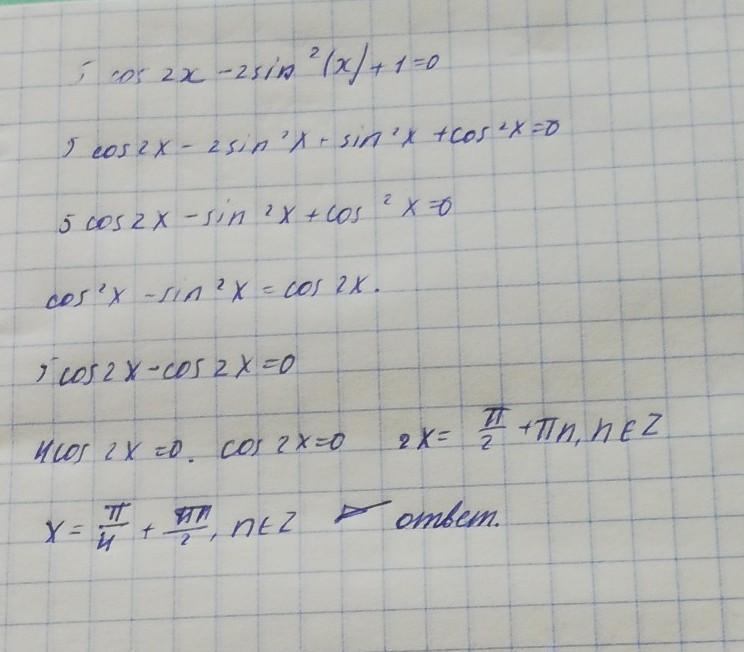 5 cos 2x - 2 sin²(x) + 1 = 0
5 cos 2x - 2 sin²x + sin²x + cos²x = 0
5 cos 2x - sin²x + cos²x = 0
cos²x - sin²x = cos 2x.
5 cos 2x - cos 2x = 0
4 cos 2x = 0. cos 2x = 0 2x = π/2 + πn, n ∈ Z
x = π/4 + πn/2, n ∈ Z ответ.